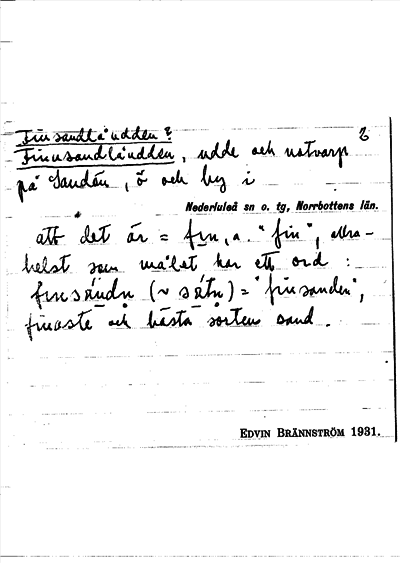 Finsandläudden? 2
Finnsandläudden, udde och notvarp
på Sandön, ö och by i
Nederluleå sn o. tg, Norrbottens län.
att det är = fın, a. "fin", allra-
helst som målet har ett ord:
fınsándn (~ sátn) = "finsanden",
finaste och bästa sorten sand.
EDVIN BRÄNNSTRÖM 1931.